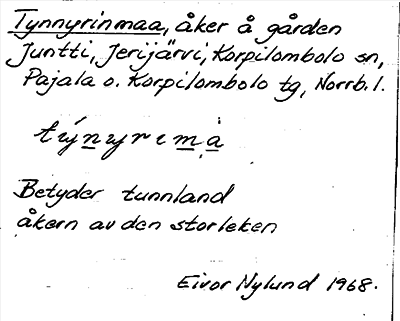 Tynnyrinmaa, åker å gården
Juntti, Jerijärvi, Korpilombolo sn,
Pajala o. Korpilombolo tg, Norrb. l.
týnyrımȧ
Betyder tunnland
åkern av den storleken
Eivor Nylund 1968.